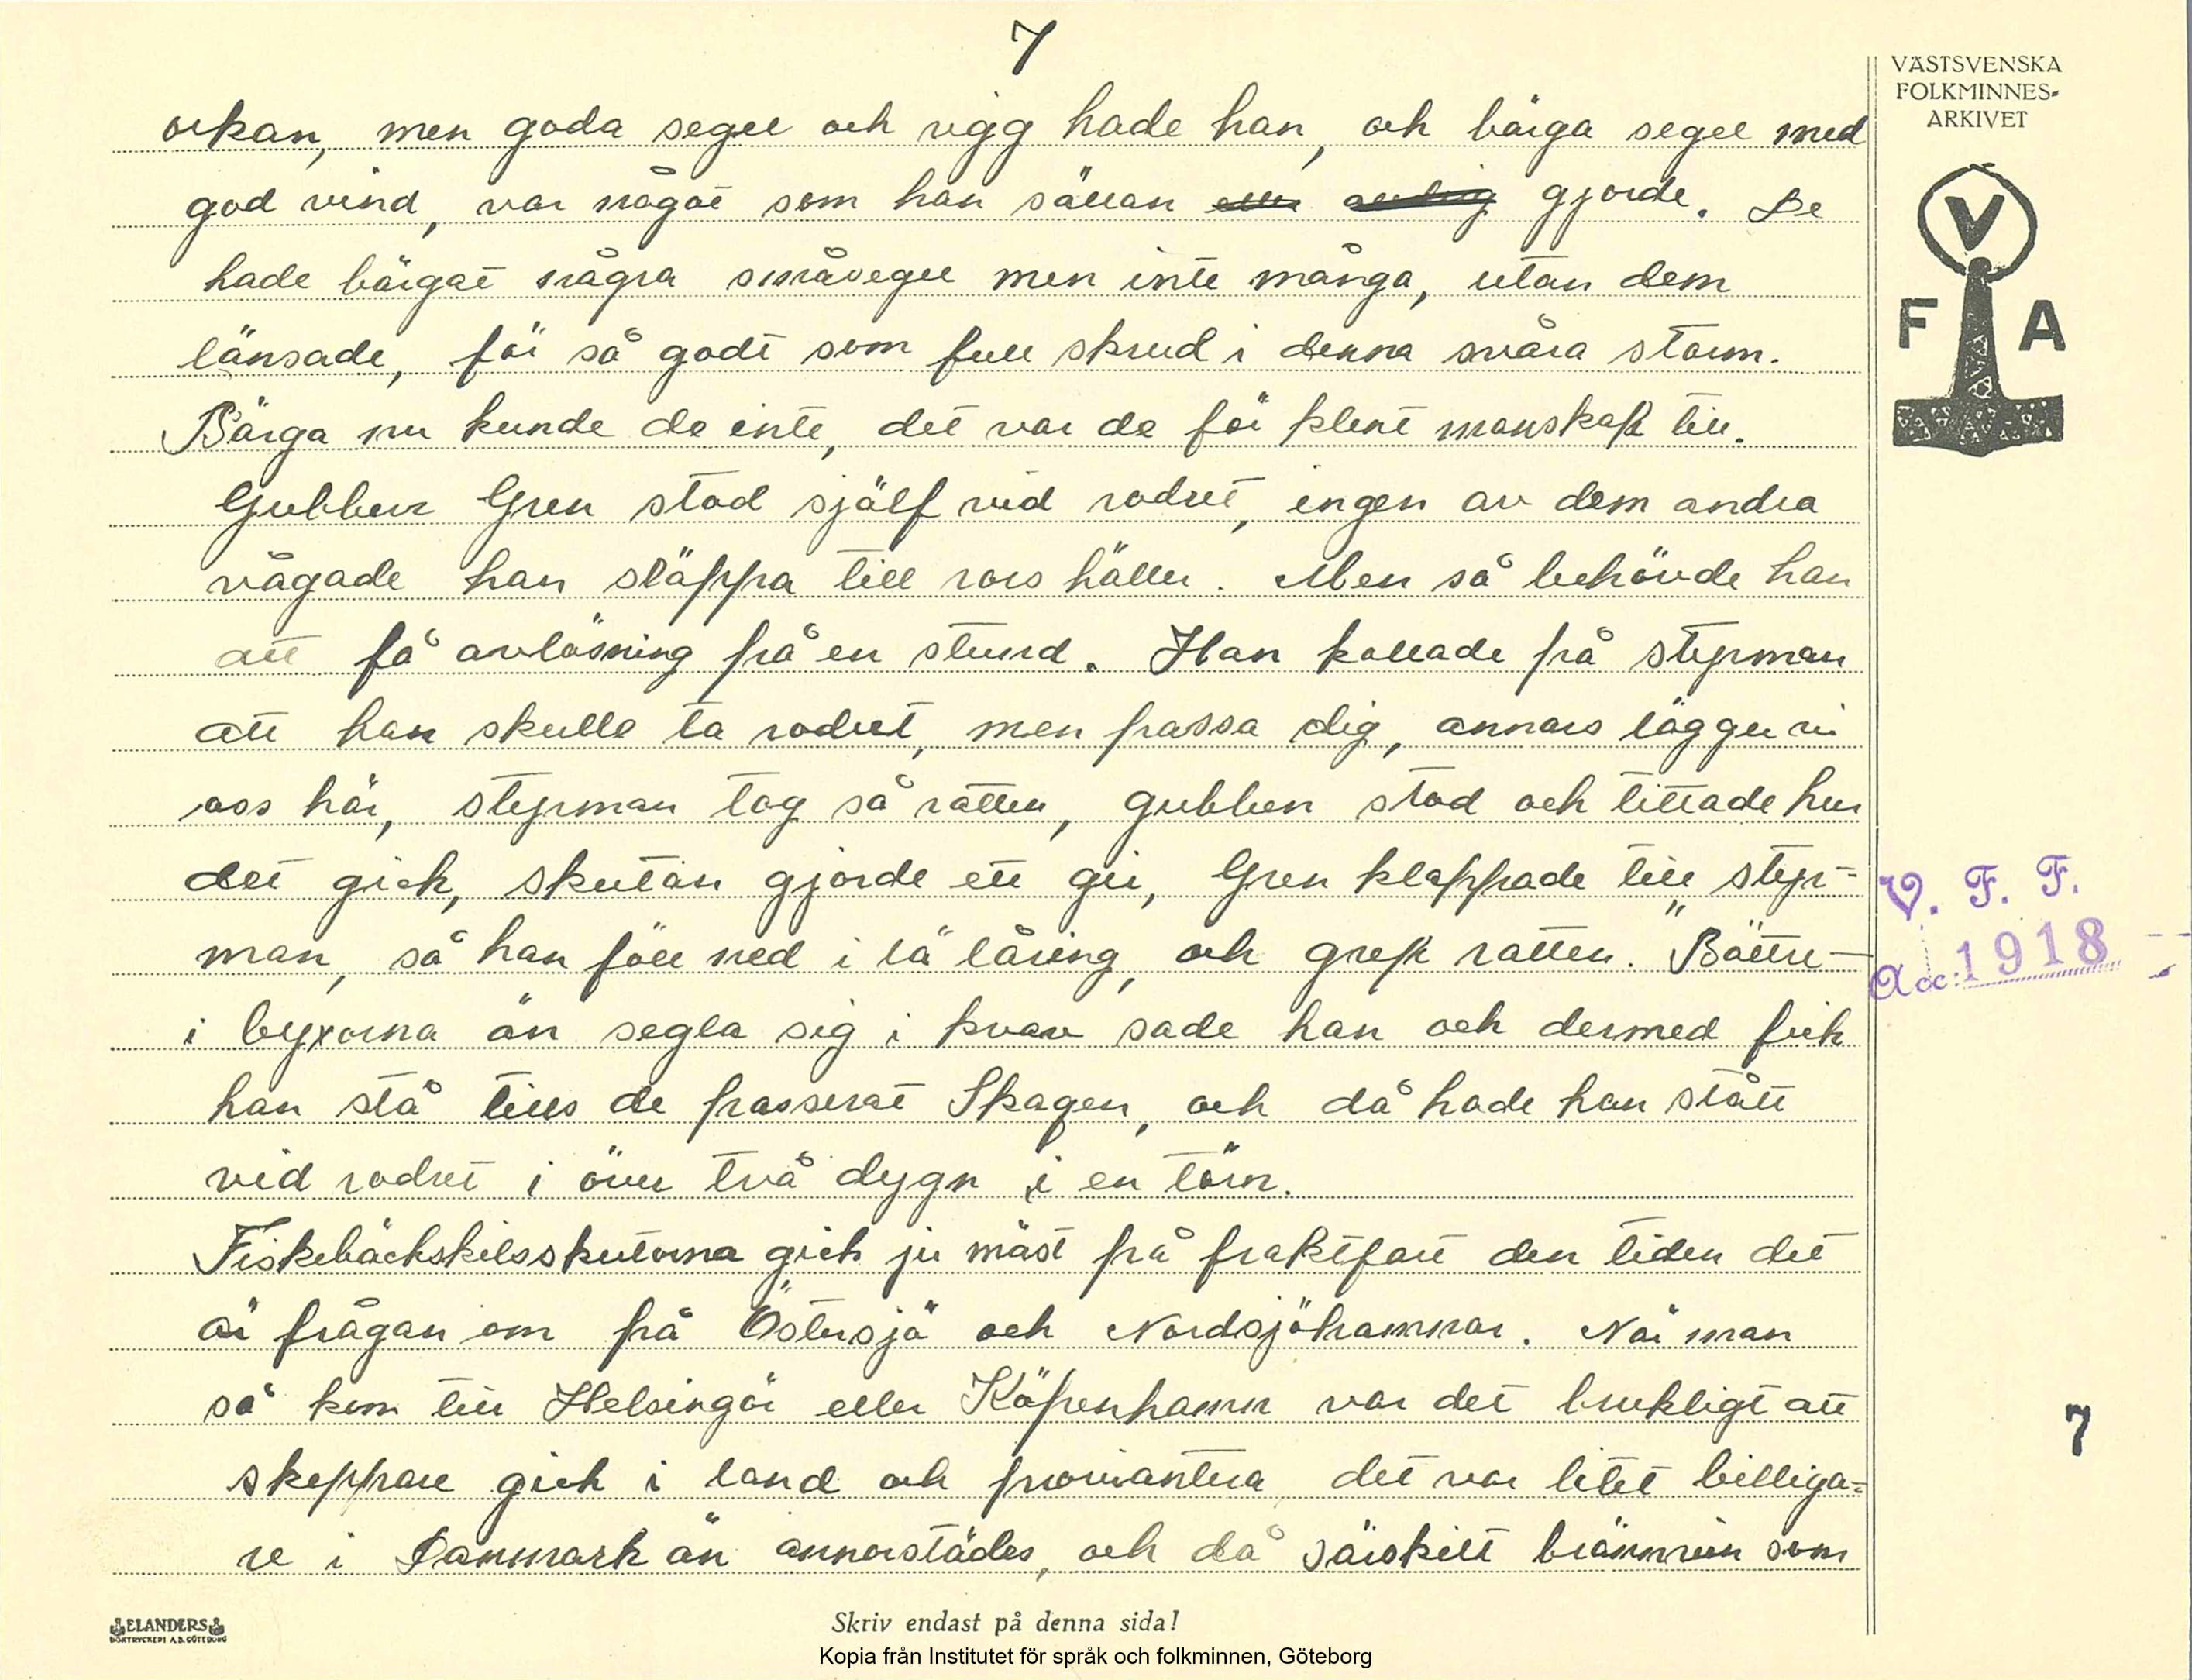 7
VÄSTSVENSKA
FOLKMINNES-
ARKIVET
orkan, men goda segel och rigg hade han, och bärga segel med
god vind, var något som han sällan gjorde. De
hade bärgat några småsegel men inte många, utan dem
länsade, för så godt som full skrud i denna svåra storm.
Bärga nu kunde de inte, det var de för klent manskap till.
Gubben Gren stod själf vid rodret, ingen av dem andra
vågade han släppa till rors häller. Men så behövde han
att få avlösning på en stund. Han kallade på styrman
att han skulle ta rodret, men passa dig, annars lägger vi
oss här, styrman tog så ratten, gubben stod och tittade hur
det gick, skutan gjorde ett gir, Gren klappade till styr-
man, så han föll ned i lä låring, och grep ratten. "Bättre —
i byxorna än segla sig i kvav sade han och dermed fick
han stå tills de passerat Skagen, och då hade han stått
vid rodret i över två dygn i en törn.
Fiskebäckskilsskutorna gick ju mäst på fraktfart den tiden det
är frågan om på Östersjö och Nordsjöhamnar. När man
så kom till Helsingör eller Köpenhamn var det brukligt att
skeppare gick i land och proviantera det var litet billiga=
re i Danmark än annorstädes, och då särskilt brännvin som
V
F A
V. F. F.
Acc. 1918
7
ELANDERS
BOKTRYCKERI A.B. GÖTEBORG
Skriv endast på denna sida!
Kopia från Institutet för språk och folkminnen, Göteborg